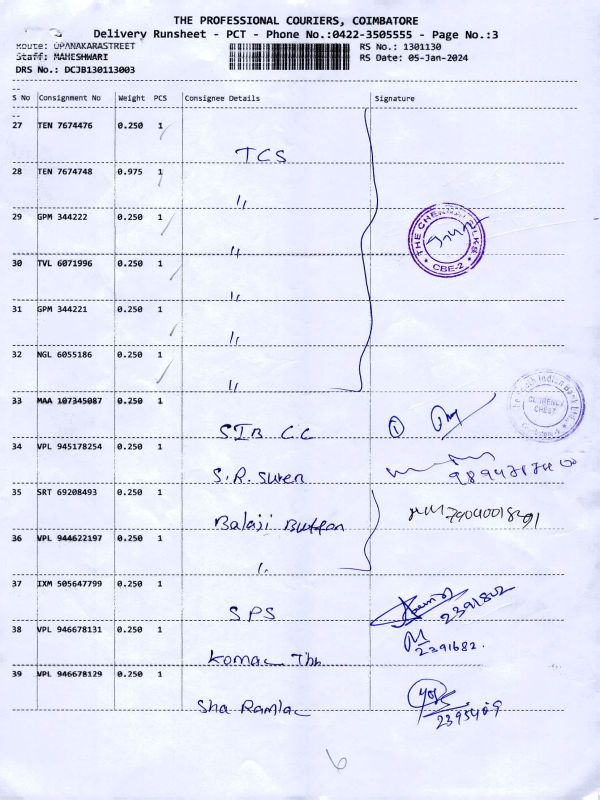 THE PROFESSIONAL COURIERS, COIMBATORE
Delivery Runsheet - PCT - Phone No.:0422-3505555 - Page No.:3
Route: OPANAKARASTREET
RS No.: 1301130
Staff: MAHESHWARI
RS Date: 05-Jan-2024
DRS No.: DCJB130113003
S No Consignment No Weight PCS Consignee Details Signature
27 TEN 7674476 0.250 1
TCS
28 TEN 7674748 0.975 1
"
THE CHENNAI SILKS
CBE-2
29 GPM 344222 0.250 1
"
30 TVL 6071996 0.250 1
"
31 GPM 344221 0.250 1
"
32 NGL 6055186 0.250 1
"
The South Indian Bank Ltd.
CURRENCY
CHEST
33 MAA 107345087 0.250 1
SIB C.C
34 VPL 945178254 0.250 1
S.R. Suren
35 SRT 69208493 0.250 1
Balaji Button
36 VPL 944622197 0.250 1
"
37 IXM 505647799 0.250 1
SPS
2391802
38 VPL 946678131 0.250 1
Komac
2391682.
39 VPL 946678129 0.250 1
Sha Ramlac
2395409
6